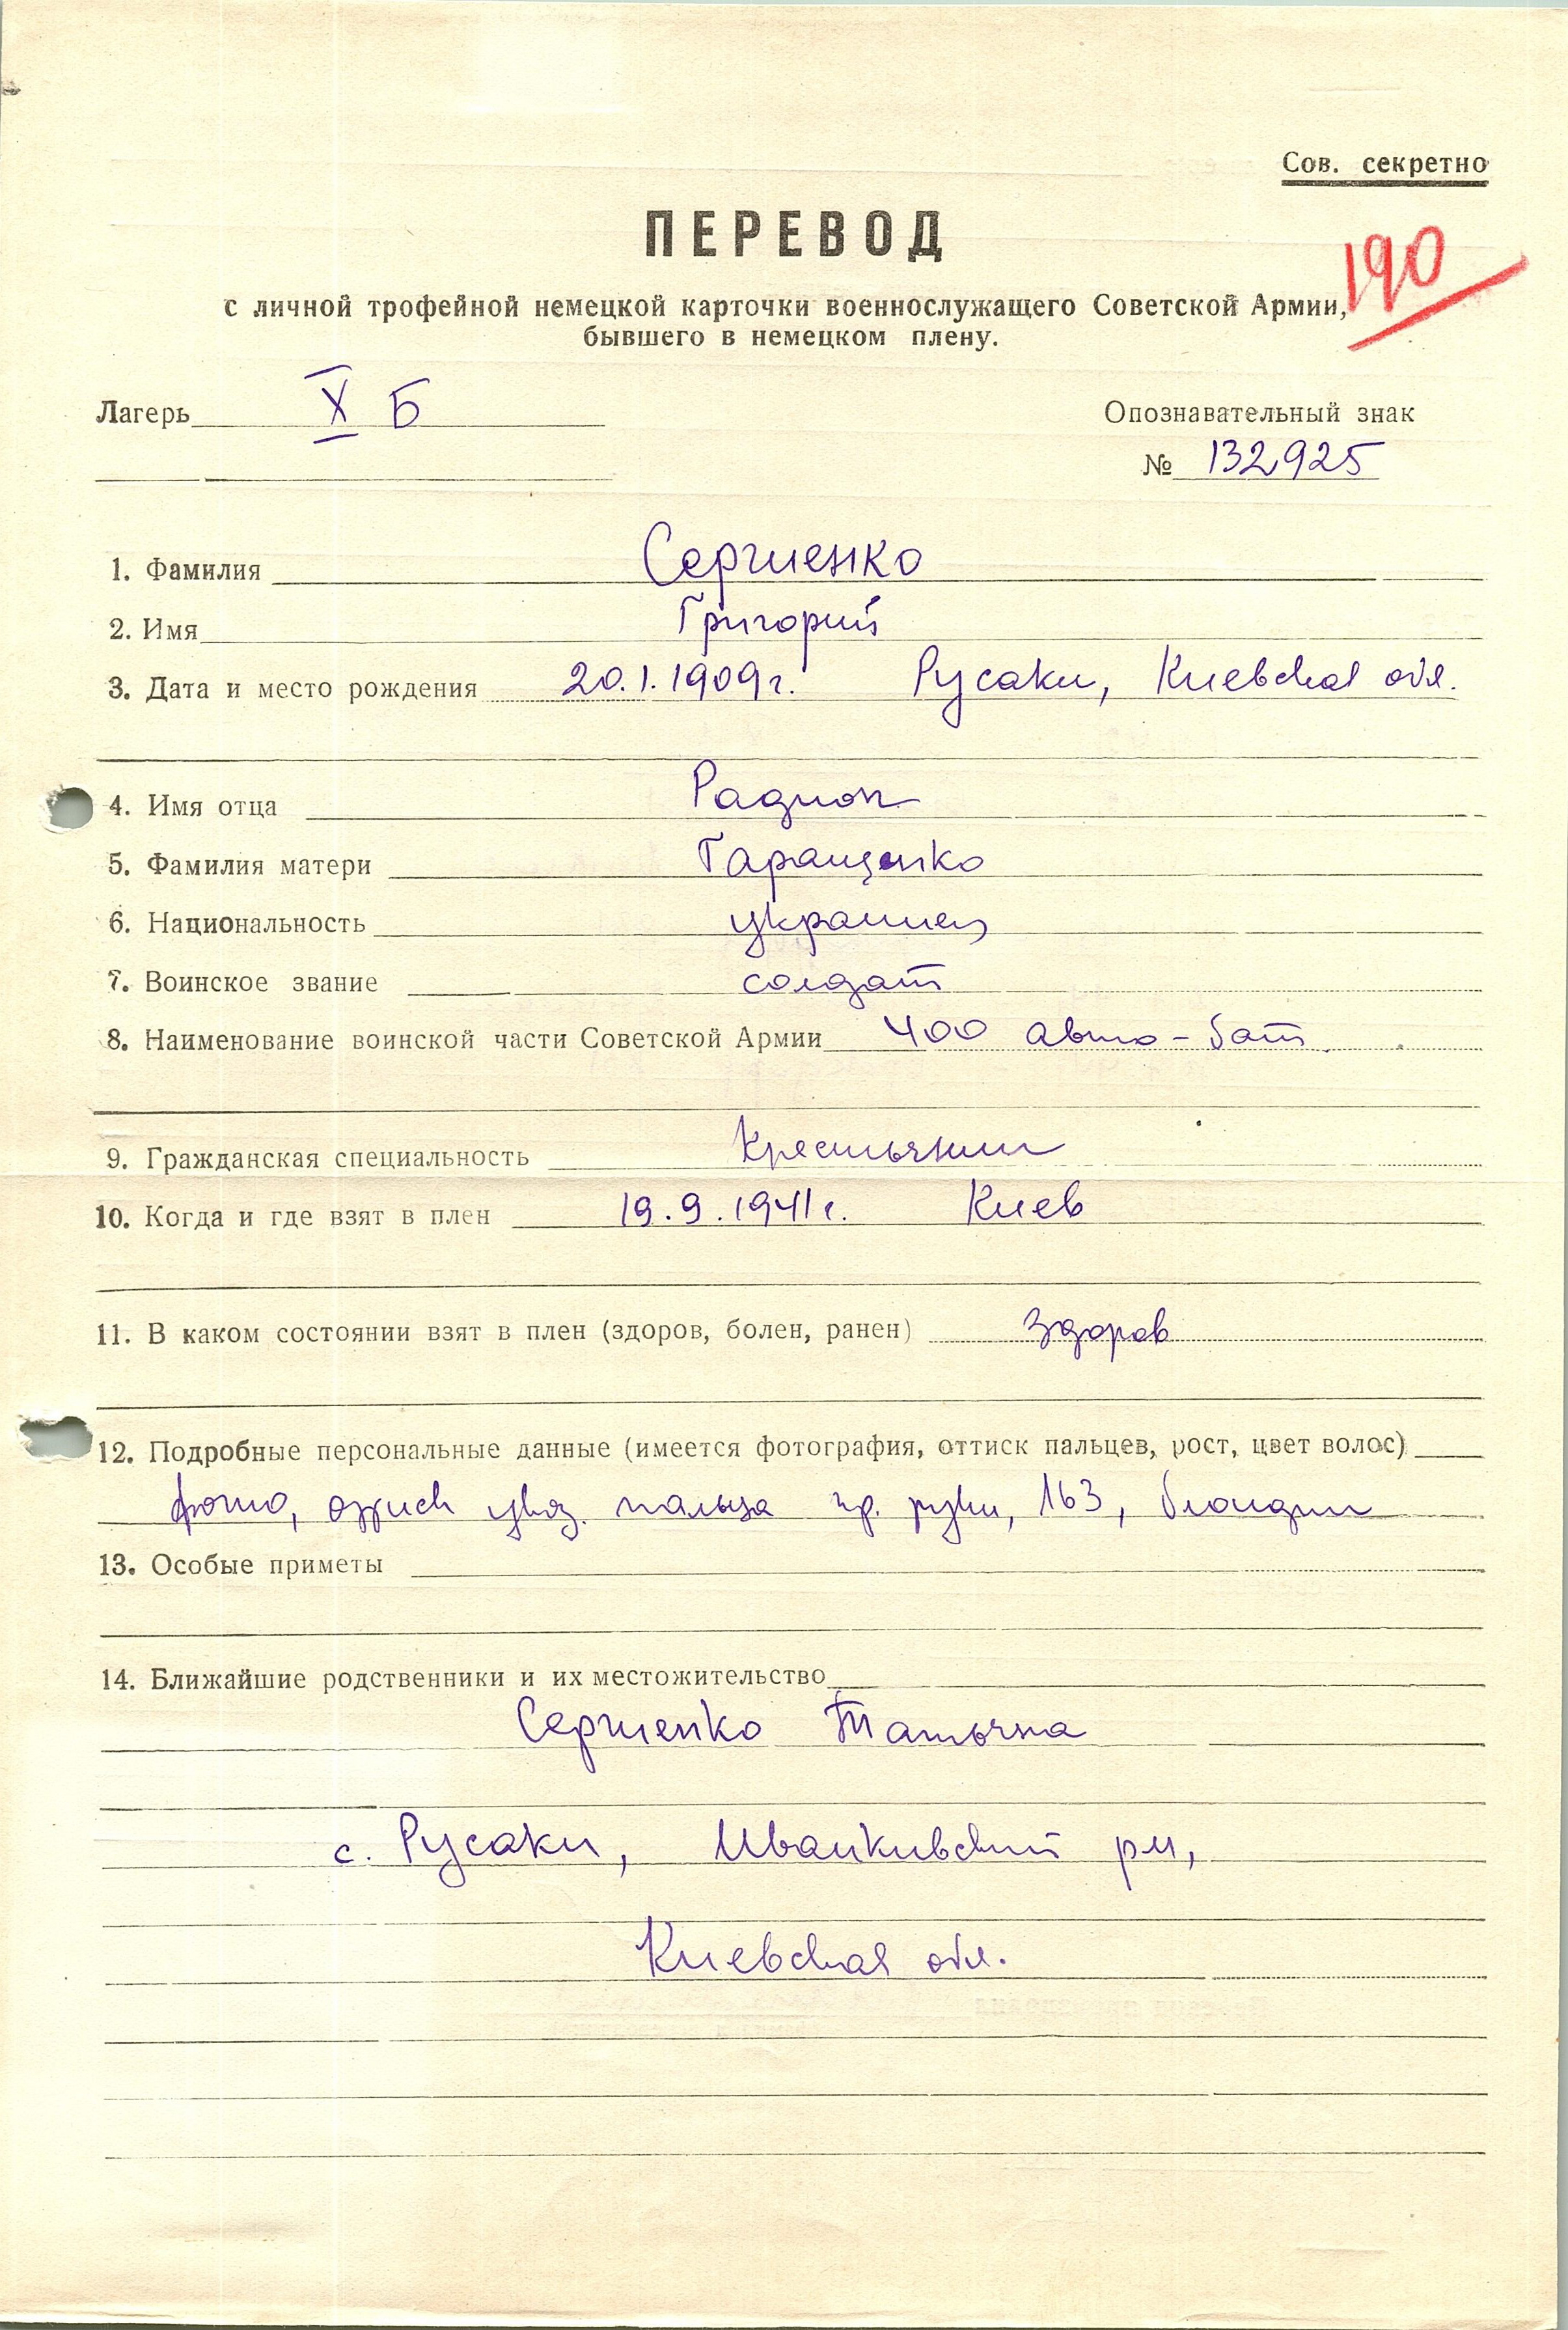 Сов. секретно
ПЕРЕВОД
190
с личной трофейной немецкой карточки военнослужащего Советской Армии,
бывшего в немецком плену.
Лагерь X Б
Опознавательный знак
№ 132925
1. Фамилия Сергиенко
2. Имя Григорий
3. Дата и место рождения 20.1.1909г. Русаки, Киевская обл.
4. Имя отца Радион
5. Фамилия матери Гаращенко
6. Национальность украинец
7. Воинское звание солдат
8. Наименование воинской части Советской Армии 400 авто-бат
9. Гражданская специальность Крестьянин
10. Когда и где взят в плен 19.9.1941г. Киев
11. В каком состоянии взят в плен (здоров, болен, ранен) здоров
12. Подробные персональные данные (имеется фотография, оттиск пальцев, рост, цвет волос)
фото, указ. пальца пр. руки, 163, блондин
13. Особые приметы
14. Ближайшие родственники и их местожительство
Сергиенко Татьяна
с. Русаки, Иванкивский рн,
Киевская обл.